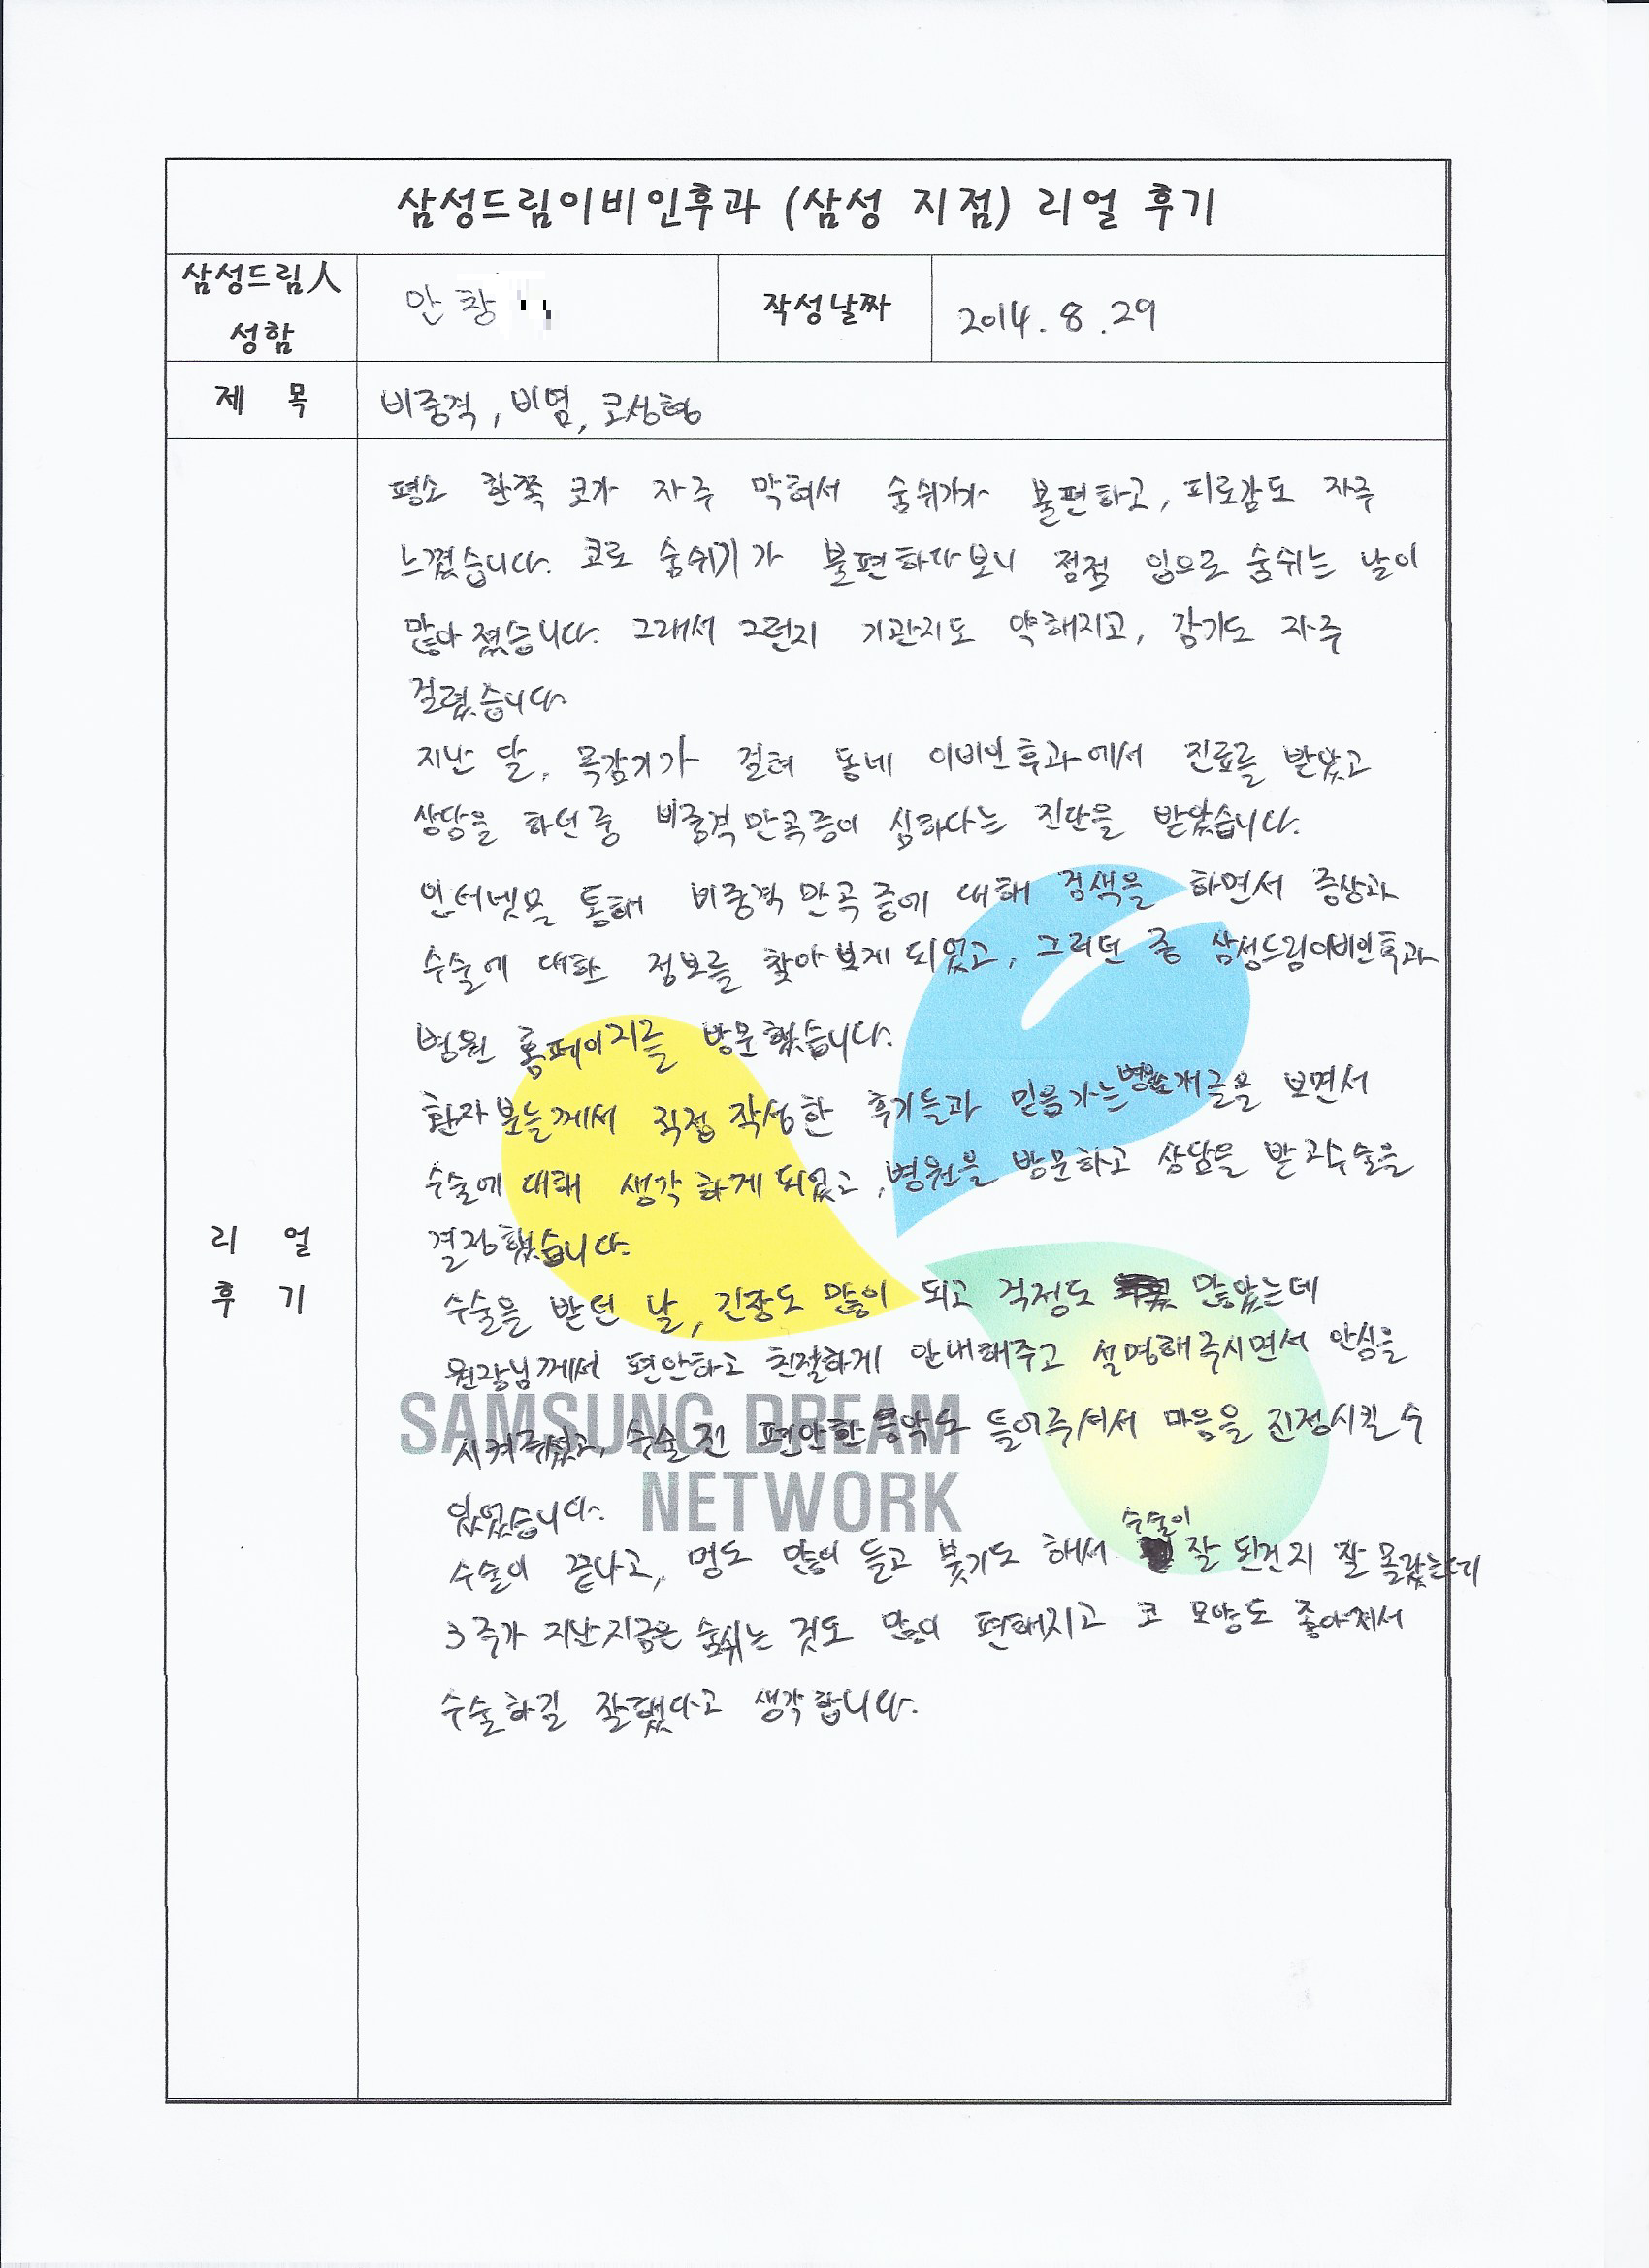 삼성드림이비인후과 (삼성 지점) 리얼 후기
삼성드림人
성함
안창
작성날짜
2014. 8. 29
제 목
비중격, 비염, 코성형
평소 한쪽 코가 자주 막혀서 숨쉬기가 불편하고, 피로감도 자주
느꼈습니다. 코로 숨쉬기가 불편하다보니 점점 입으로 숨쉬는 날이
많아졌습니다. 그래서 그런지 기관지도 약해지고, 감기도 자주
걸렸습니다
지난 달, 목감기가 걸려 동네 이비인후과에서 진료를 받았고
상담을 하던 중 비중격만곡증이 심하다는 진단을 받았습니다.
인터넷을 통해 비중격만곡증에 대해 검색을 하면서 증상과
수술에 대한 정보를 찾아보게 되었고, 그러던 중 삼성드림이비인후과
병원 홈페이지를 방문했습니다.
환자분들께서 직접 작성한 후기들과 믿음가는 병원소개글을 보면서
수술에 대해 생각하게 되었고, 병원을 방문하고 상담을 받고 수술을
결정했습니다.
리 얼
후 기
수술을 받던 날, 긴장도 많이 되고 걱정도 많았는데
원장님께서 편안하고 친절하게 안내해주고 설명해주시면서 안심을
시켜주셨고, 수술 전 편안한 음악도 들어주셔서 마음을 진정시킬 수
있었습니다.
수술이 끝나고, 멍도 많이 들고 붓기도 해서 수술이 잘 된건지 잘 몰랐는데
3주가 지난 지금은 숨쉬는 것도 많이 편해지고 코 모양도 좋아져서
수술하길 잘했다고 생각합니다.
SAMSUNG DREAM
NETWORK